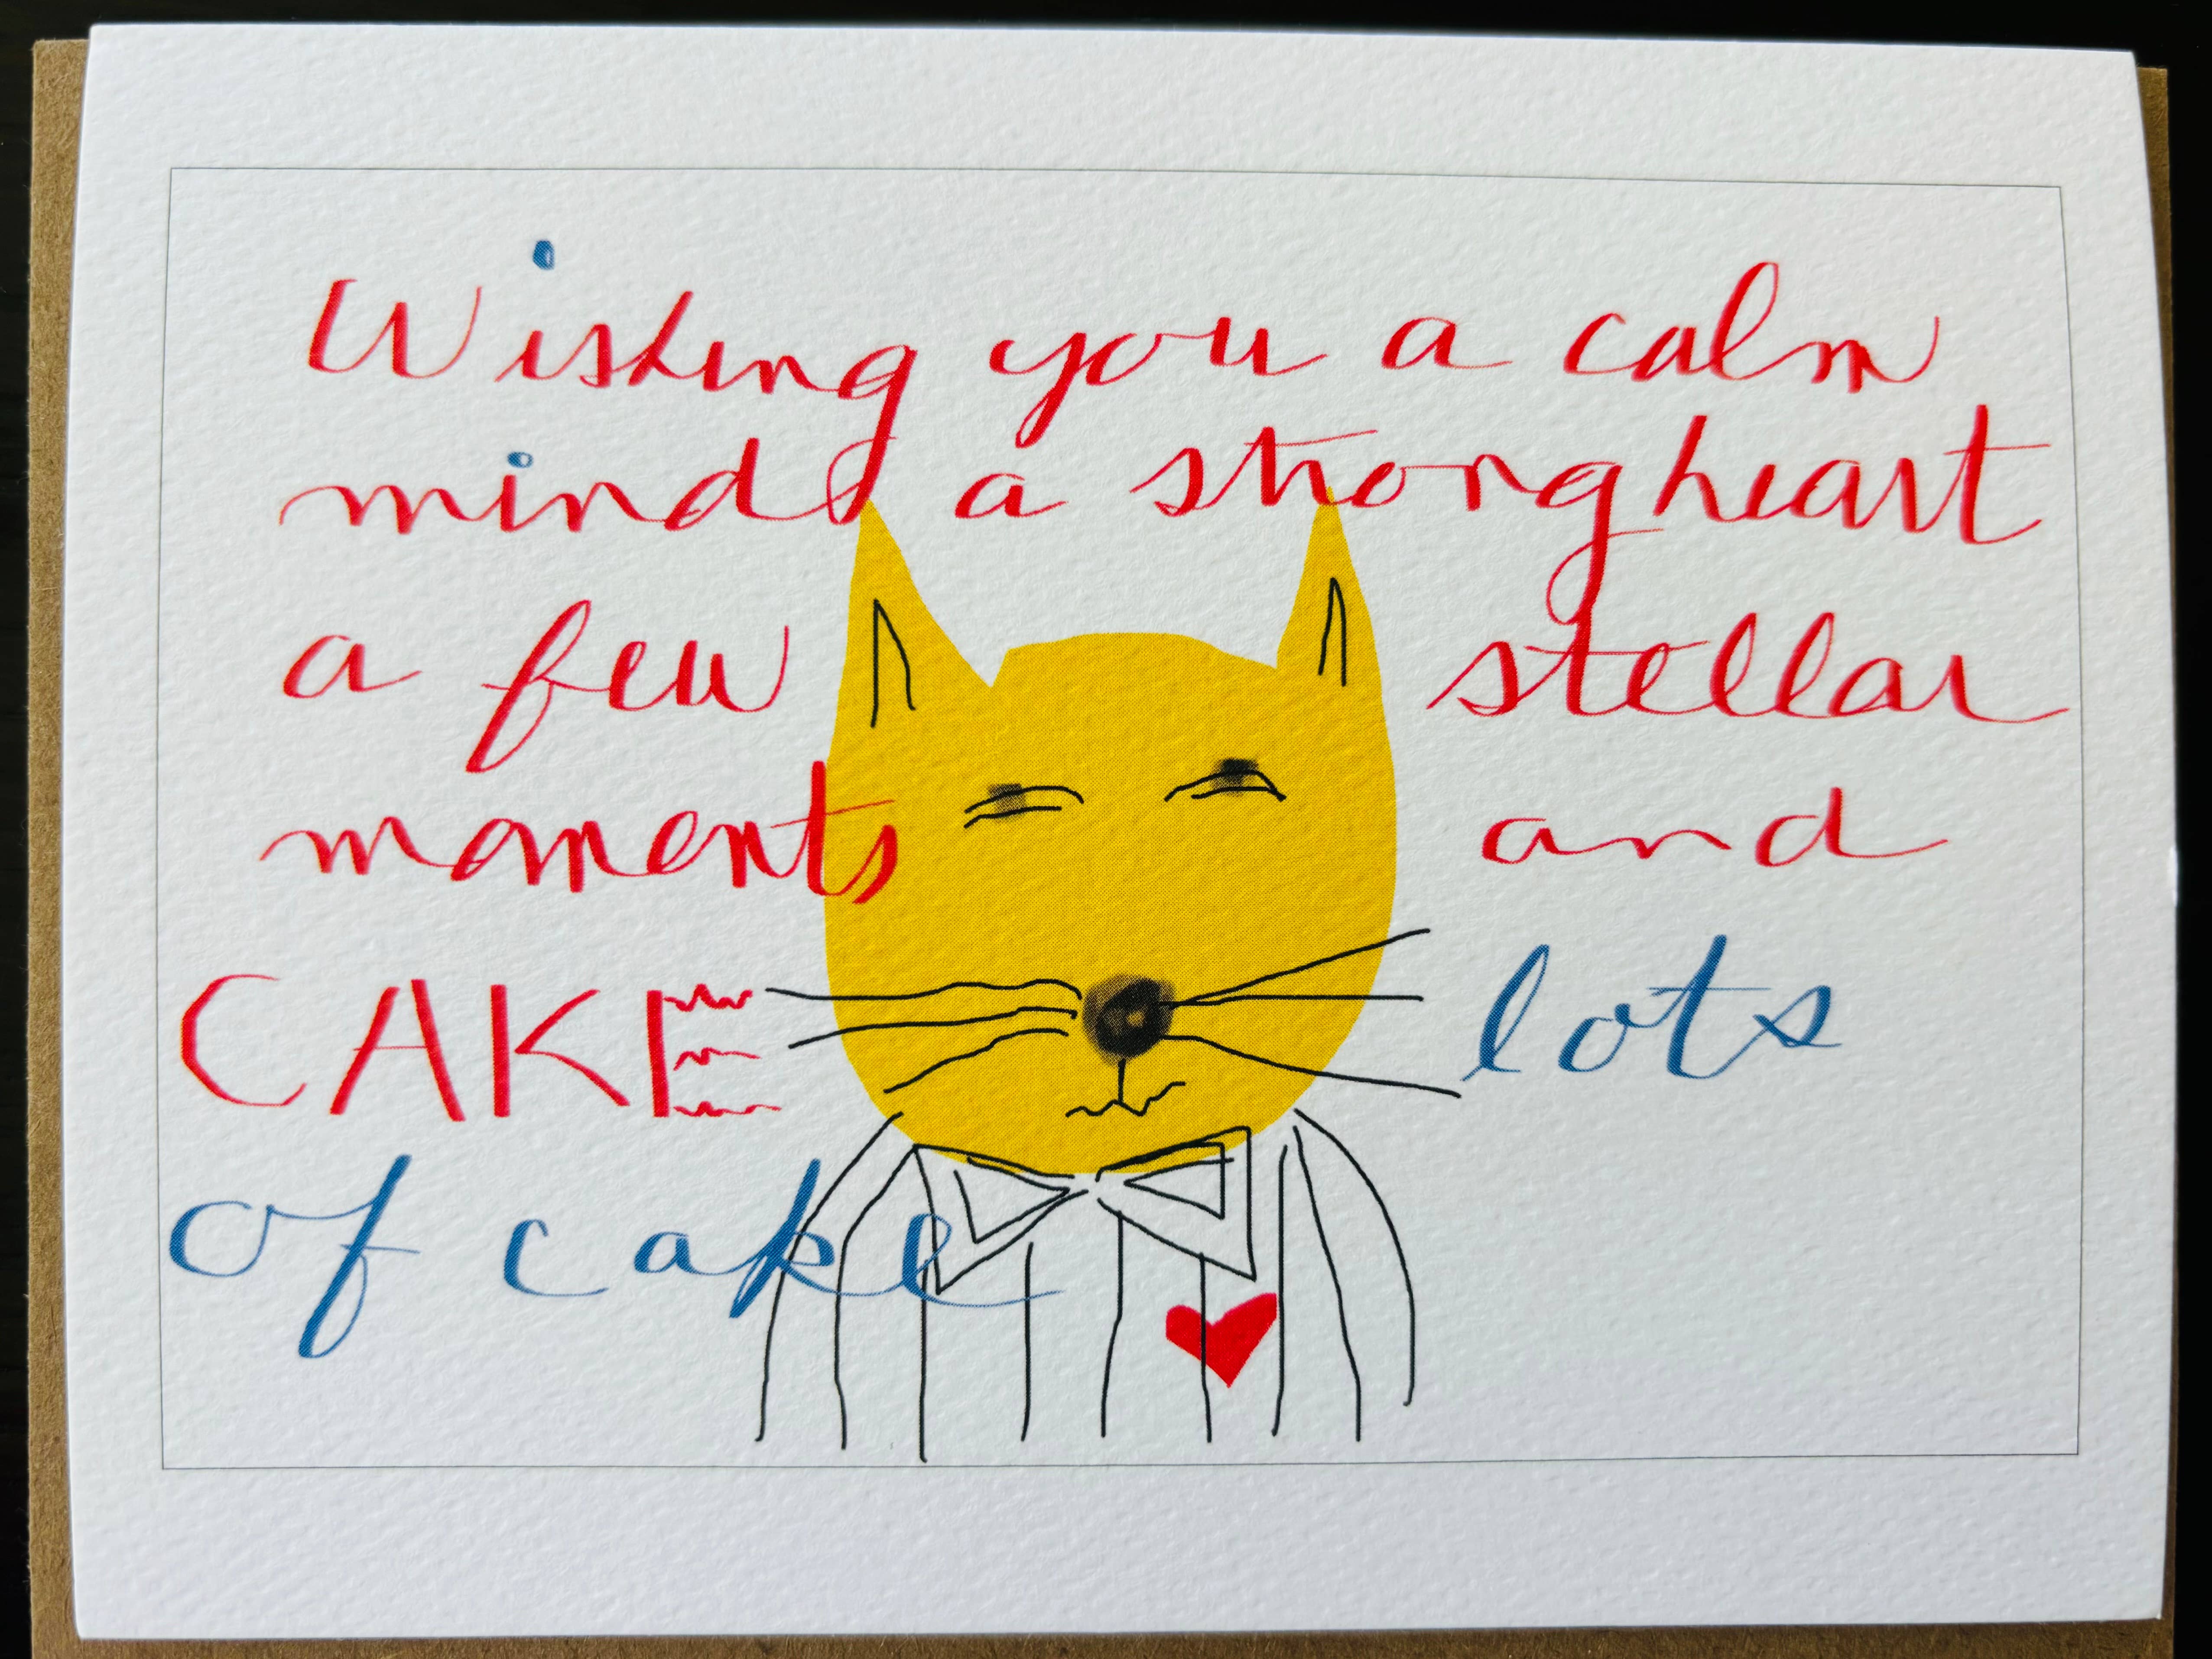 Wishing you a calm
mind a strong heart
a few stellar
moments and
CAKE lots
of cake